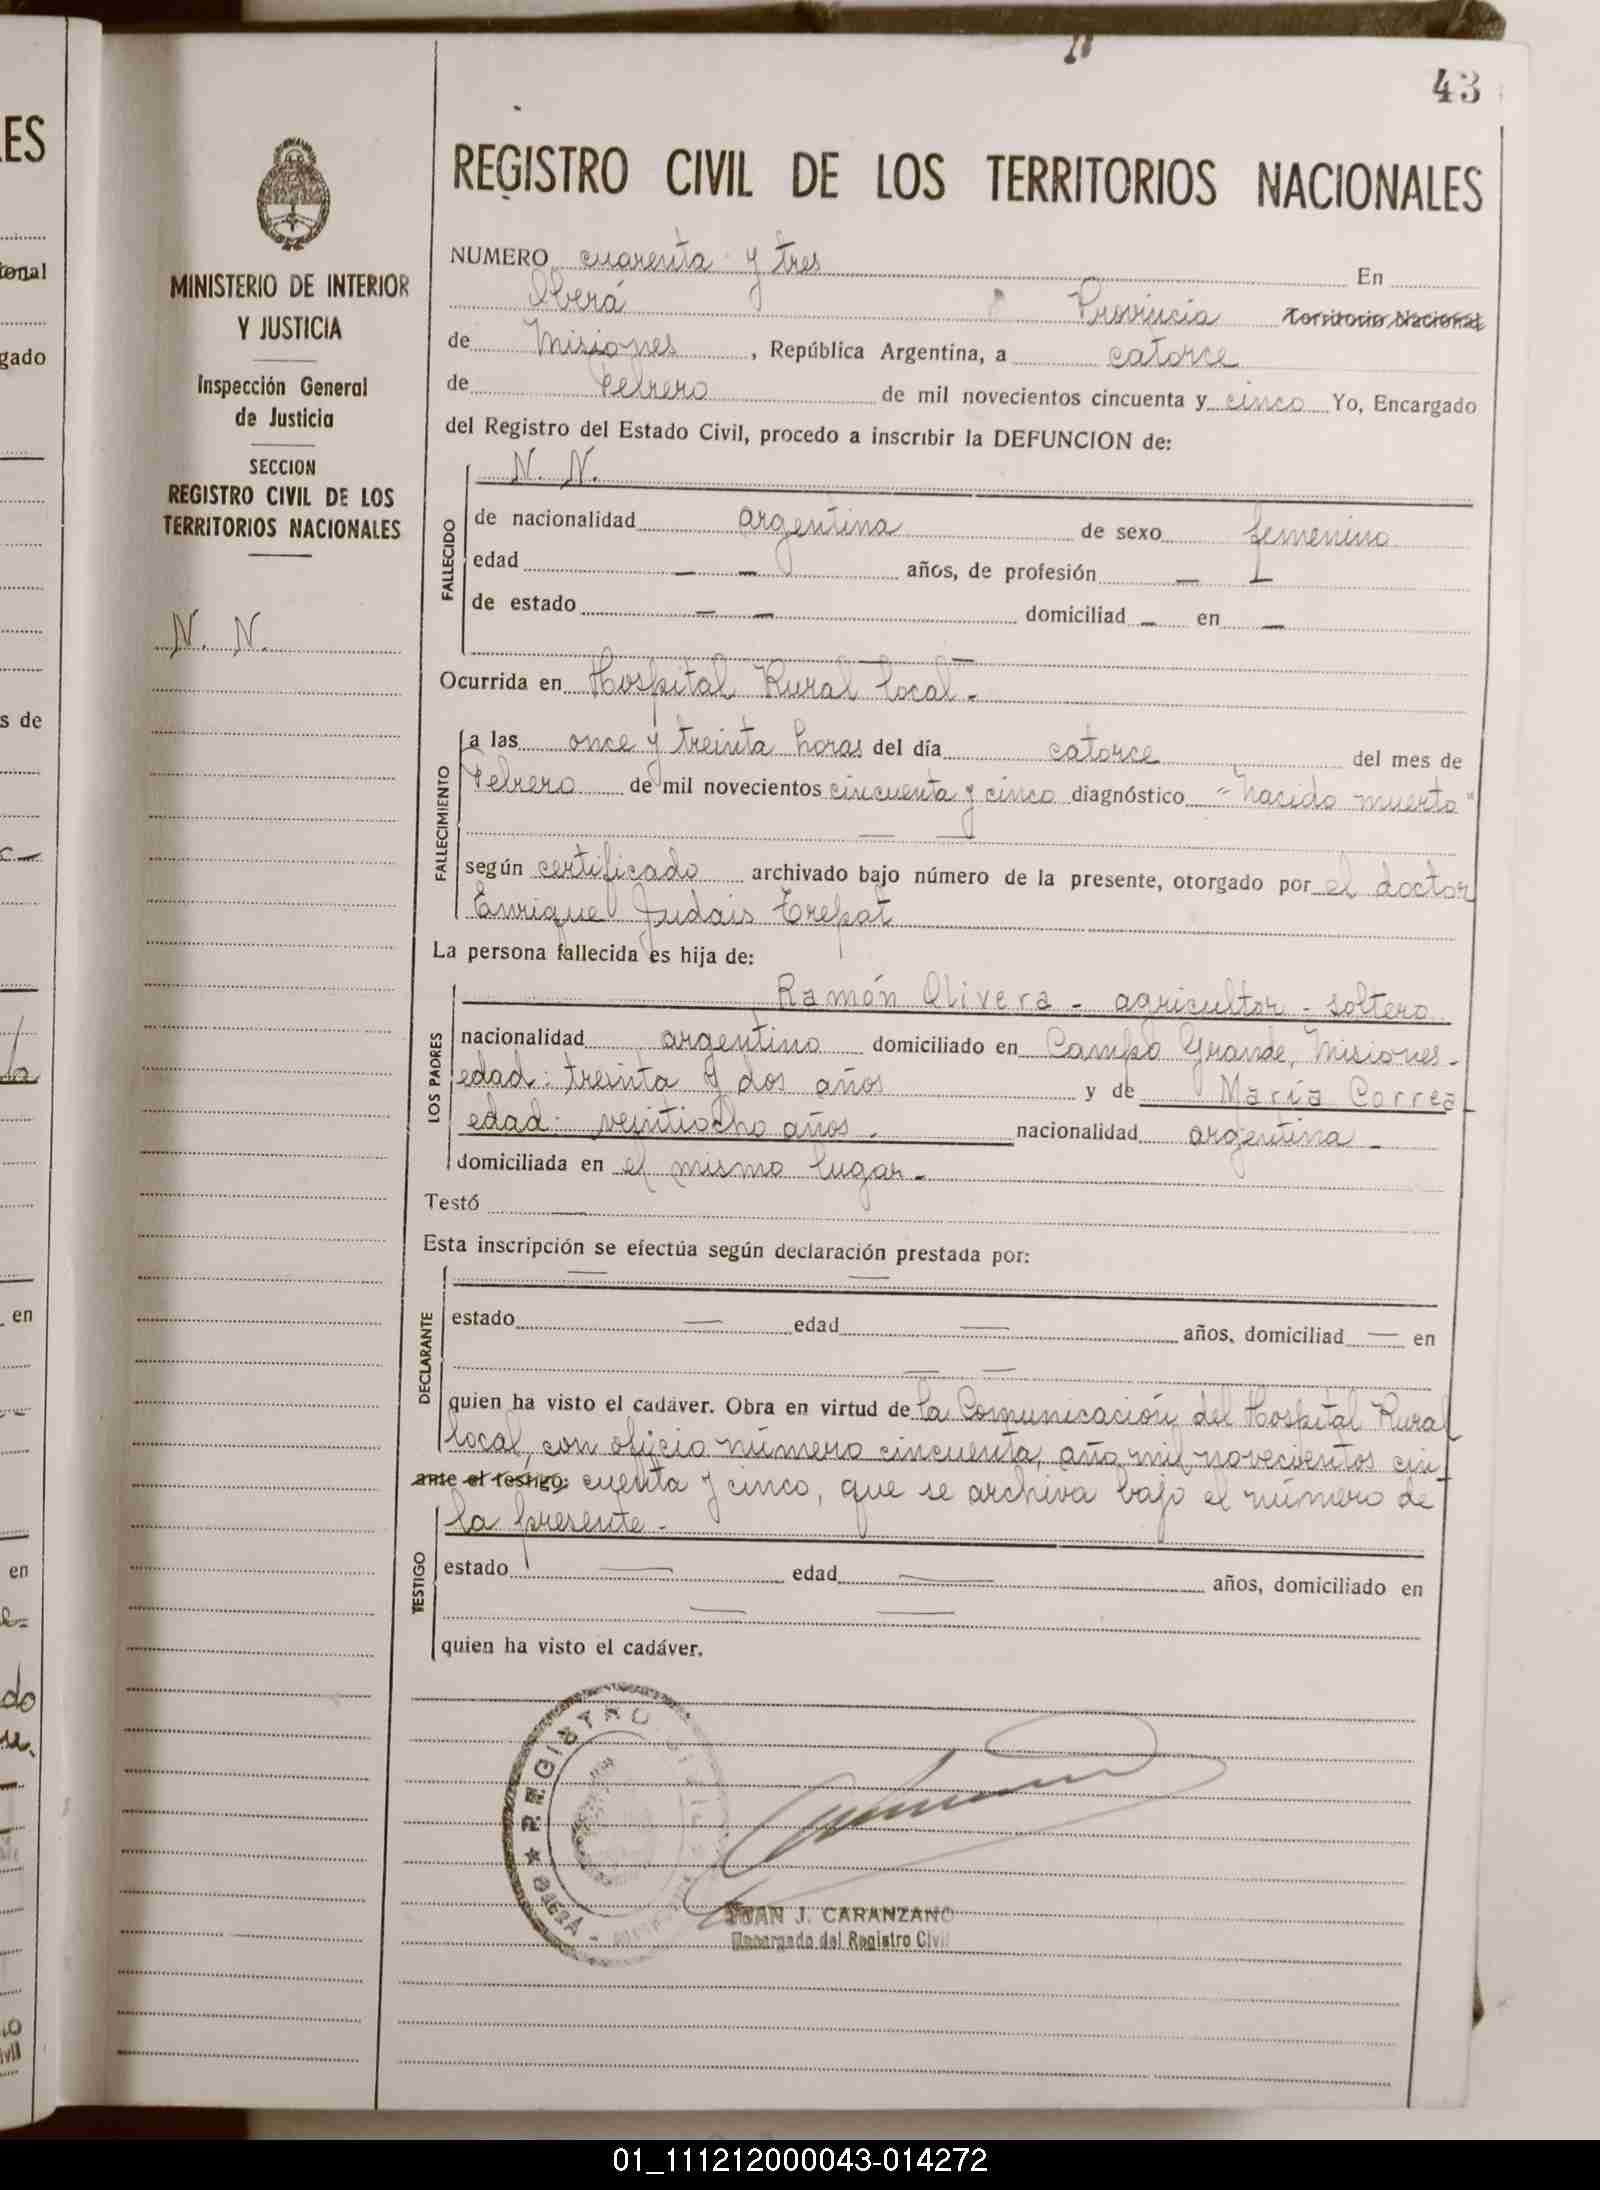 43
REGISTRO CIVIL DE LOS TERRITORIOS NACIONALES
MINISTERIO DE INTERIOR
Y JUSTICIA
Inspección General
de Justicia
SECCION
REGISTRO CIVIL DE LOS
TERRITORIOS NACIONALES
N. N.
NUMERO cuarenta y tres En
Oberá Provincia Territorio Nacional
de Misiones, República Argentina, a catorce
de Febrero de mil novecientos cincuenta y cinco Yo, Encargado
del Registro del Estado Civil, procedo a inscribir la DEFUNCION de:
FALLECIDO
N. N.
de nacionalidad argentina de sexo femenino
edad — — años, de profesión — —
de estado — — domiciliad — en —
Ocurrida en Hospital Rural local.-
FALLECIMIENTO
a las once y treinta horas del día catorce del mes de
Febrero de mil novecientos cincuenta y cinco diagnóstico "nacido muerto"
— —
según certificado archivado bajo número de la presente, otorgado por el doctor
Enrique Judais Trepat
La persona fallecida es hija de:
LOS PADRES
Ramón Olivera - agricultor - soltero
nacionalidad argentino domiciliado en Campo Grande, Misiones -
edad: treinta y dos años y de María Correa
edad: veintiocho años. nacionalidad argentina -
domiciliada en el mismo lugar.-
Testó —
Esta inscripción se efectúa según declaración prestada por:
DECLARANTE
— —
estado — edad — años, domiciliad — en
— —
quien ha visto el cadáver. Obra en virtud de la Comunicación del Hospital Rural
local, con oficio número cincuenta, año mil novecientos cin-
ante el testigo: cuenta y cinco, que se archiva bajo el número de
la presente.-
TESTIGO
estado — edad — años, domiciliado en
— —
quien ha visto el cadáver.
REGISTRO CIVIL
OBERÁ
JUAN J. CARANZANO
Encargado del Registro Civil
01_111212000043-014272